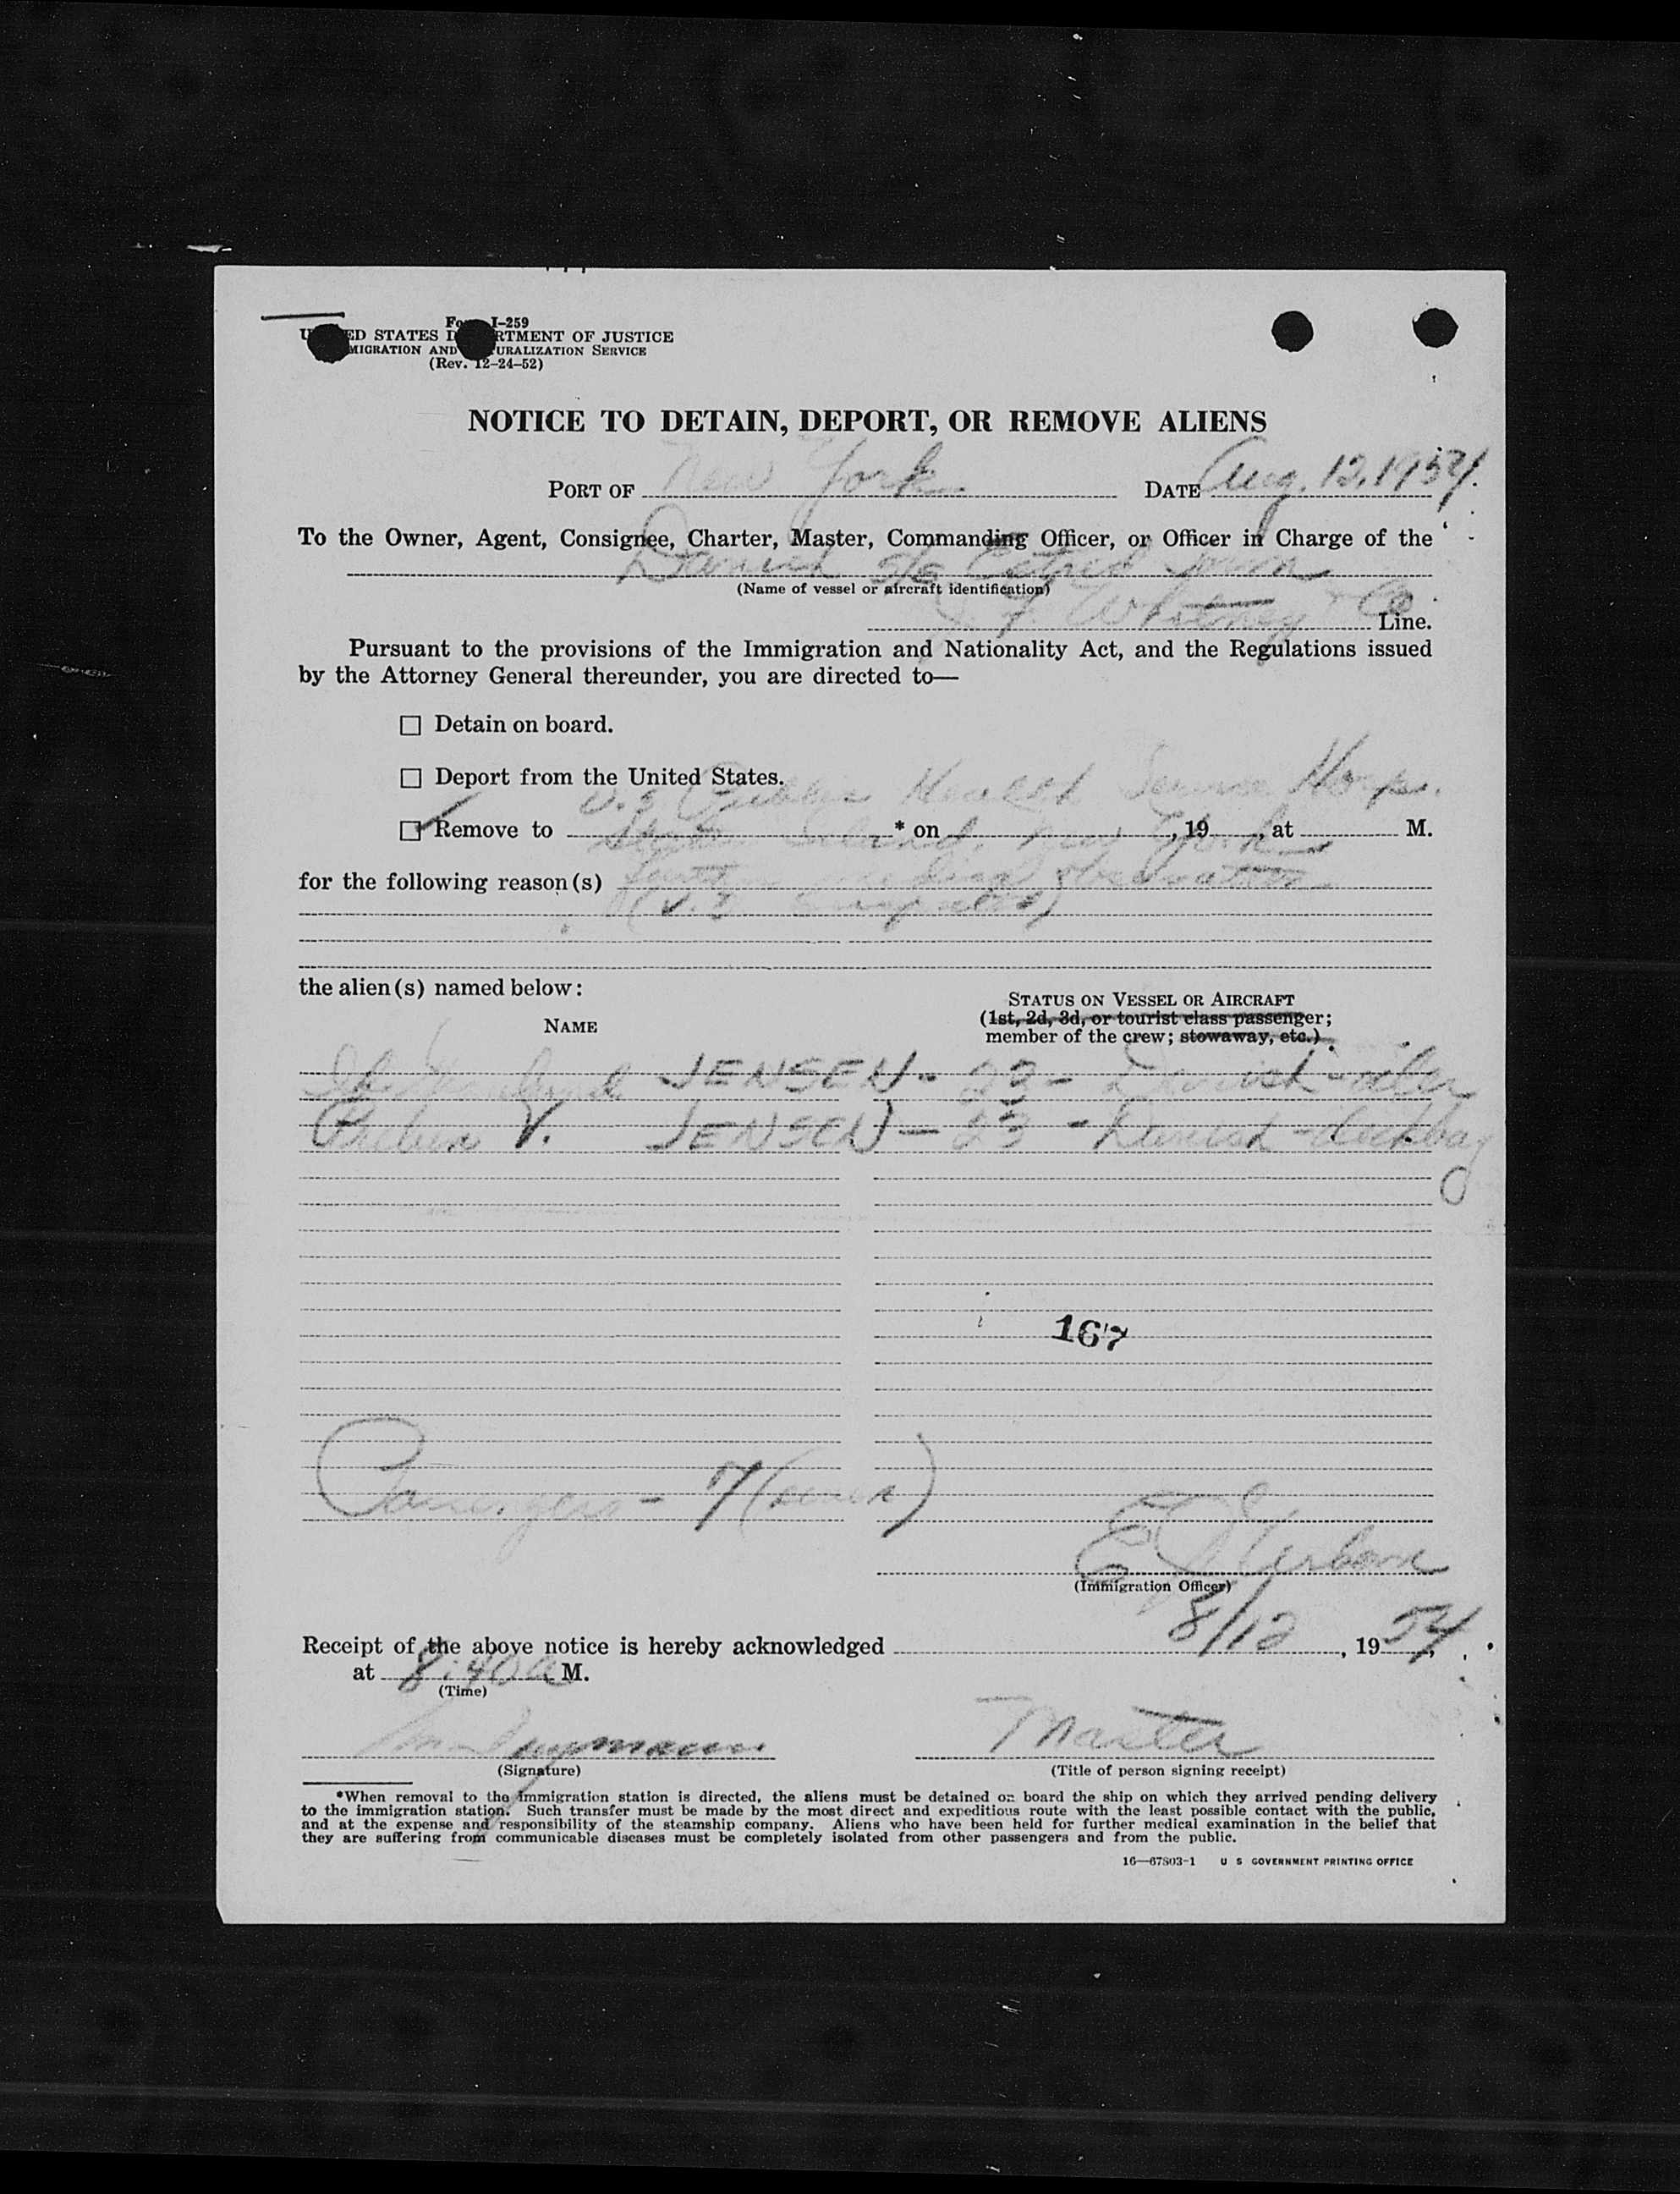 Form I-259
UNITED STATES DEPARTMENT OF JUSTICE
IMMIGRATION AND NATURALIZATION SERVICE
(Rev. 12-24-52)
NOTICE TO DETAIN, DEPORT, OR REMOVE ALIENS
PORT OF New York DATE Aug. 12, 1954.
To the Owner, Agent, Consignee, Charter, Master, Commanding Officer, or Officer in Charge of the
Danish S/S
(Name of vessel or aircraft identification)
Whitney & Co Line.
Pursuant to the provisions of the Immigration and Nationality Act, and the Regulations issued
by the Attorney General thereunder, you are directed to—
☐ Detain on board.
☐ Deport from the United States.
U.S. Public Health Service Hosp.
☑ Remove to * on , 19 , at M.
Staten Island, New York
for the following reason(s) further medical observation
(V.D. suspects)
the alien(s) named below:
NAME
STATUS ON VESSEL OR AIRCRAFT
(1st, 2d, 3d, or tourist class passenger;
member of the crew; stowaway, etc.)
JENSEN - 23 - Danish - oiler
Preben V. JENSEN - 23 - Danish - deckboy
167
Passengers - 7 (seven)
(Immigration Officer)
Receipt of the above notice is hereby acknowledged 8/12, 1954,
at 8:40 a M.
(Time)
Master
(Signature)
(Title of person signing receipt)
*When removal to the immigration station is directed, the aliens must be detained on board the ship on which they arrived pending delivery
to the immigration station. Such transfer must be made by the most direct and expeditious route with the least possible contact with the public,
and at the expense and responsibility of the steamship company. Aliens who have been held for further medical examination in the belief that
they are suffering from communicable diseases must be completely isolated from other passengers and from the public.
16—67803-1 U S GOVERNMENT PRINTING OFFICE